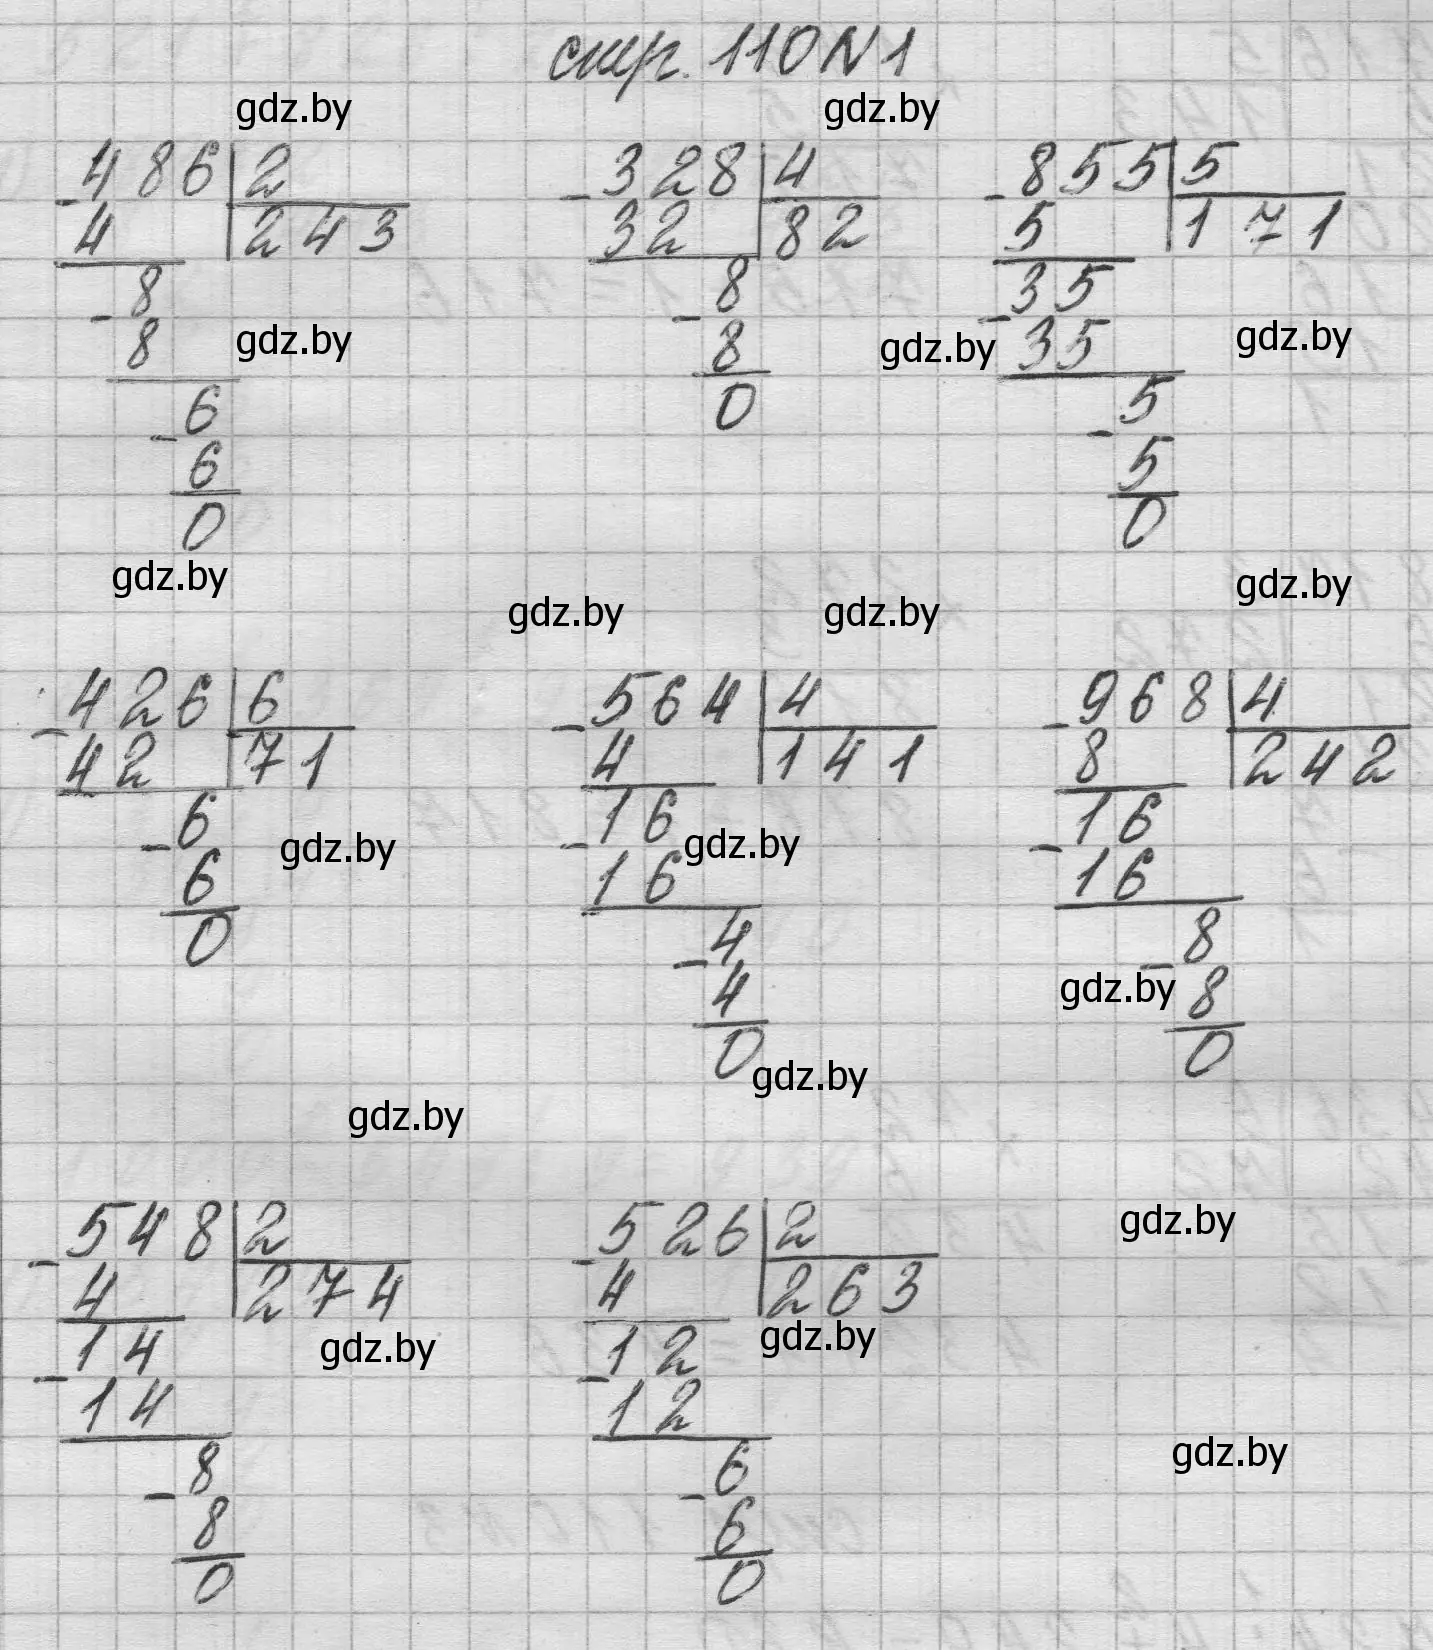 стр. 110 N 1
gdz.by gdz.by
- 486 | 2 - 328 | 4 - 855 | 5
4 243 32 82 5 171
- 8 - 8 - 35
8 gdz.by 8 gdz.by 35 gdz.by
- 6 0 - 5
6 5
0 0
gdz.by gdz.by gdz.by gdz.by
- 426 | 6 - 564 | 4 - 968 | 4
42 71 4 141 8 242
- 6 gdz.by - 16 gdz.by - 16
6 16 16
0 - 4 - 8
4 gdz.by 8
0 gdz.by 0
gdz.by
- 548 | 2 - 526 | 2 gdz.by
4 274 4 263
- 14 gdz.by - 12 gdz.by
14 12
- 8 - 6 gdz.by
8 6
0 0